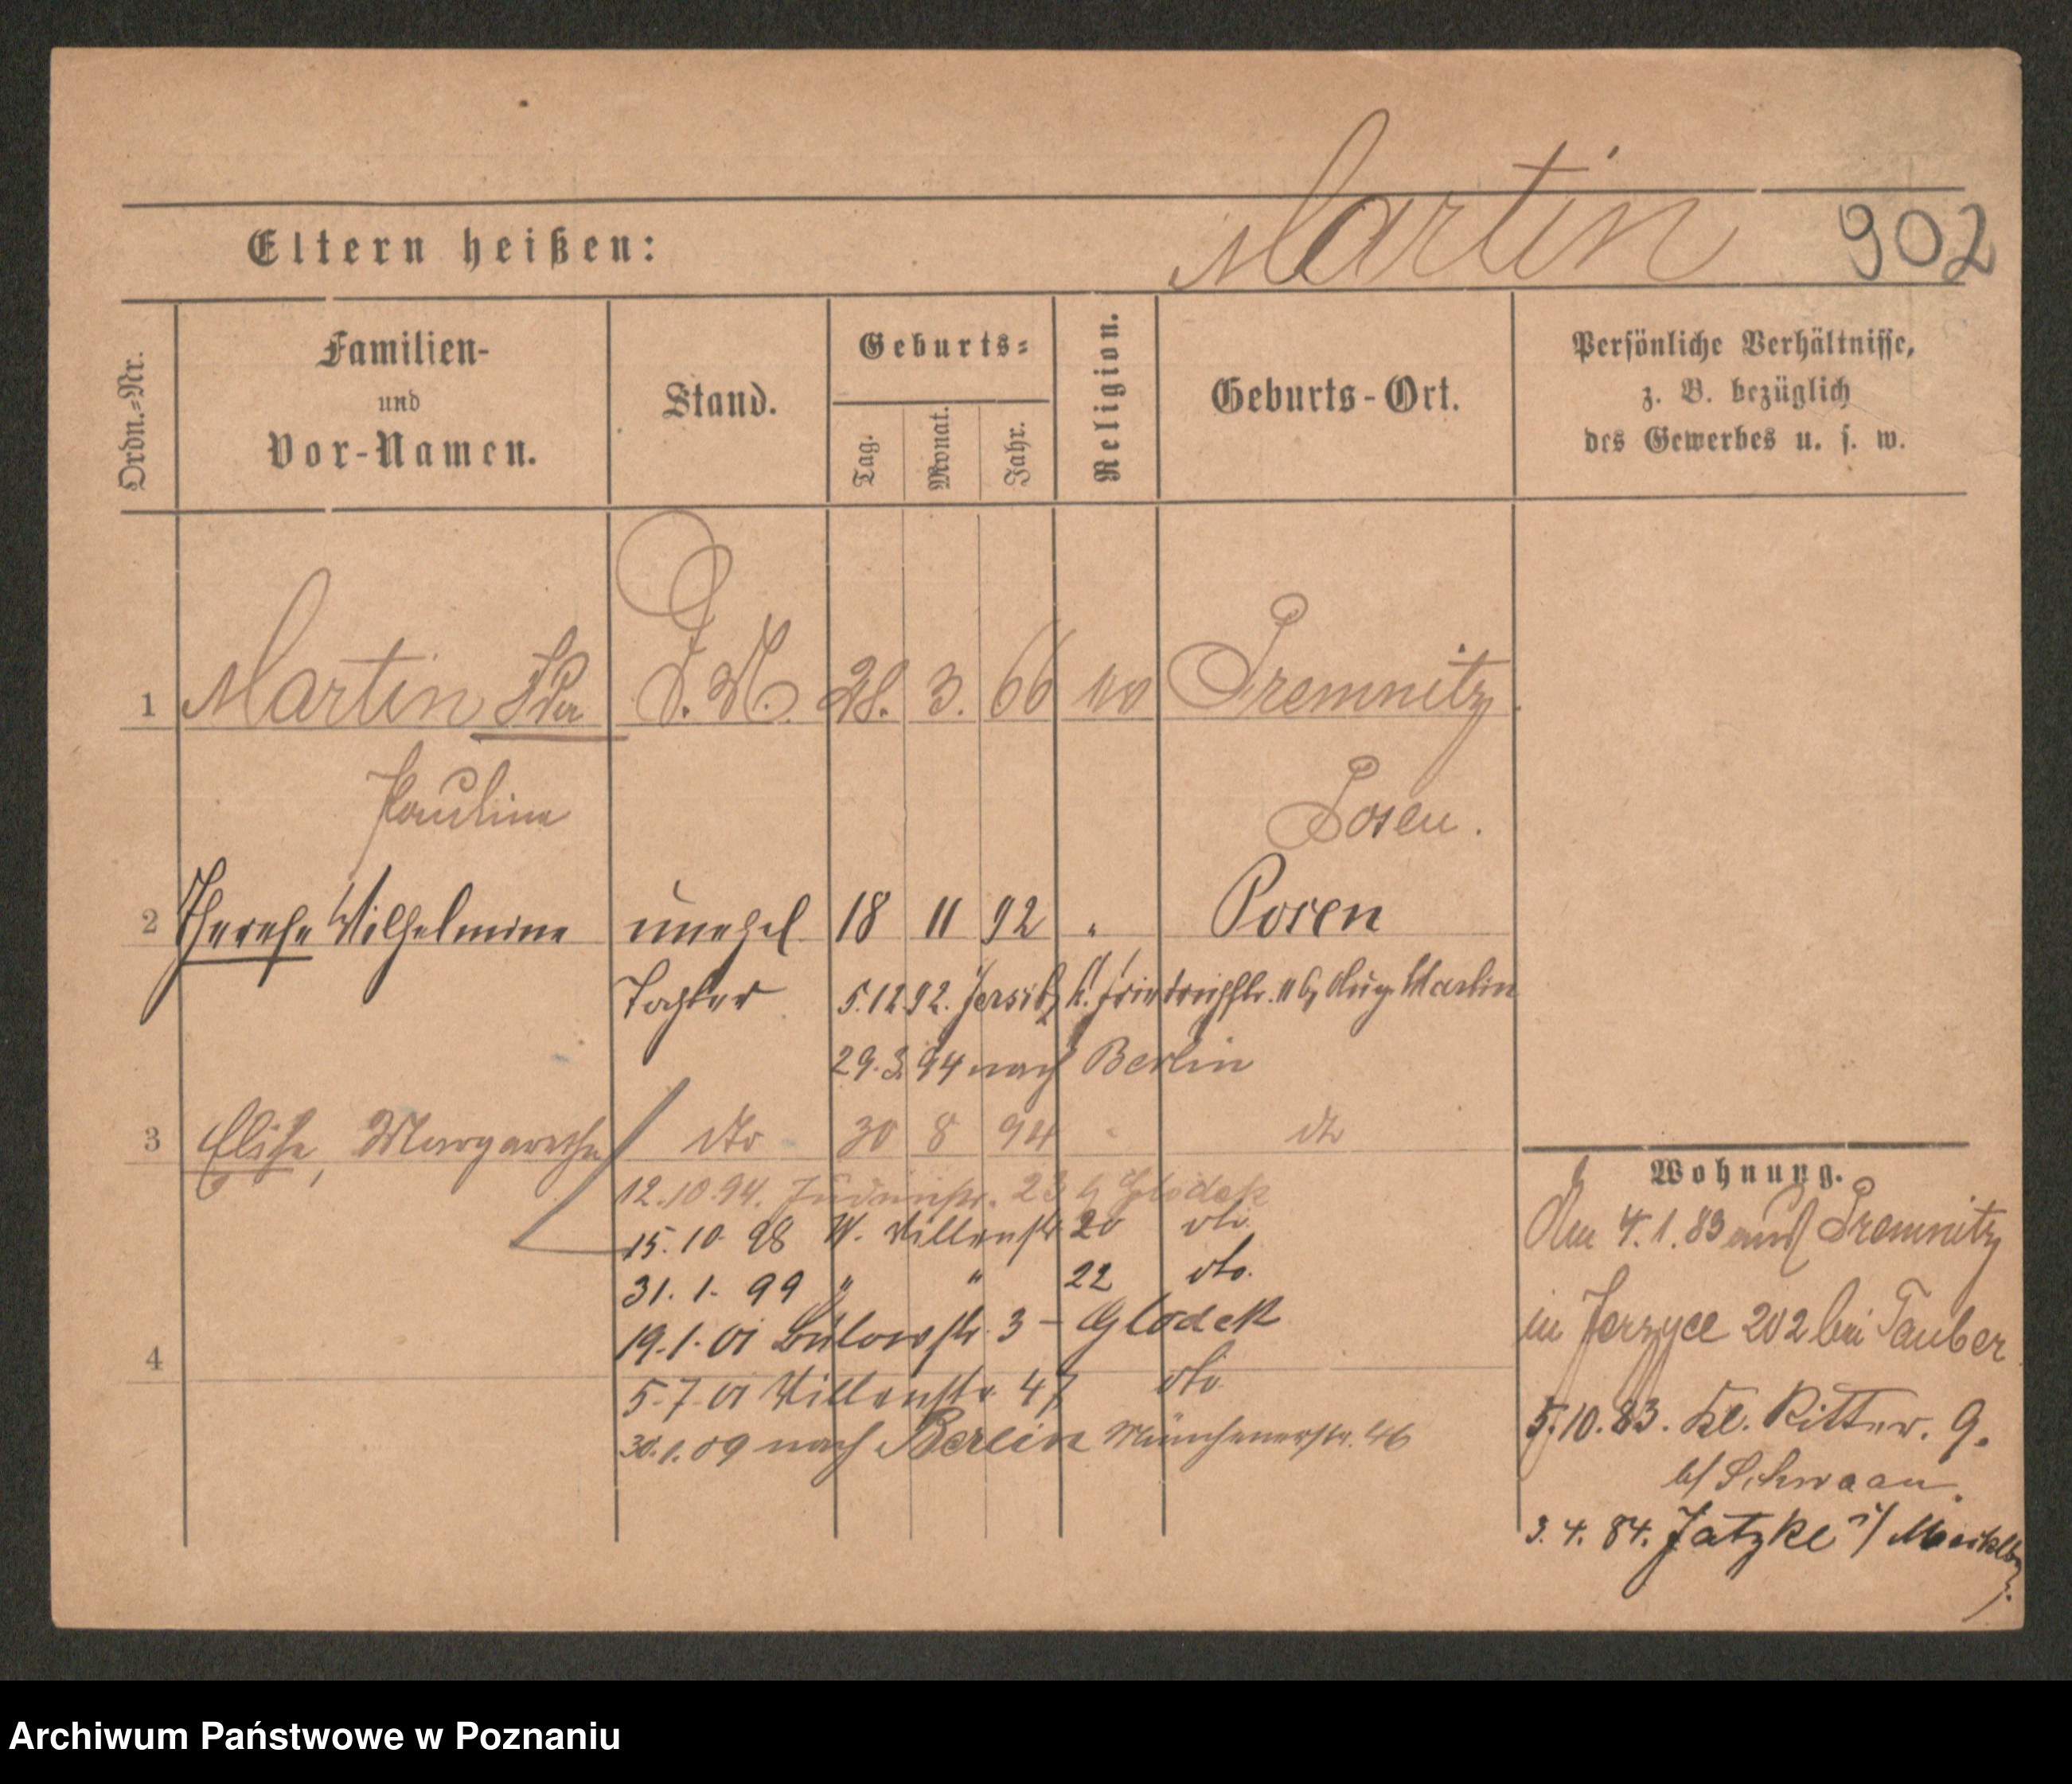 Martin 902
Eltern heißen:
Ordn.=Nr.
Familien-
und
Vor-Namen.
Stand.
Geburts=
Tag.
Monat.
Jahr.
Religion.
Geburts-Ort.
Persönliche Verhältnisse,
z. B. bezüglich
des Gewerbes u. s. w.
1 Martin Ida D. M. 28. 3. 66 Premnitz
Pauline Posen.
2 Therese Wilhelmine unehel 18 11 92 " Posen
Tochter 5.12.92. Jersitz Friedrichstr. 11 b, Aug. Martin
29.3.94 nach Berlin
3 Elise, Margarethe dto 30 8 94 " dto
12.10.94. 23 b/ Glodek
15. 10. 98 W. Villenstr 20 dto.
31. 1. 99 " " 22 dto.
19.1.01 Bülowstr. 3 - Glodek
4
5.7.01 Villenstr. 47 dto.
30.1.09 nach Berlin Münchenerstr. 46
Wohnung.
Den 4.1.83 aus Premnitz
in Jerzyce 202 bei Tauber
5.10.83. Kl. Ritterstr. 9.
b/ Schwaan.
3.4.84. Jatzke i/ Mecklbg.
Archiwum Państwowe w Poznaniu